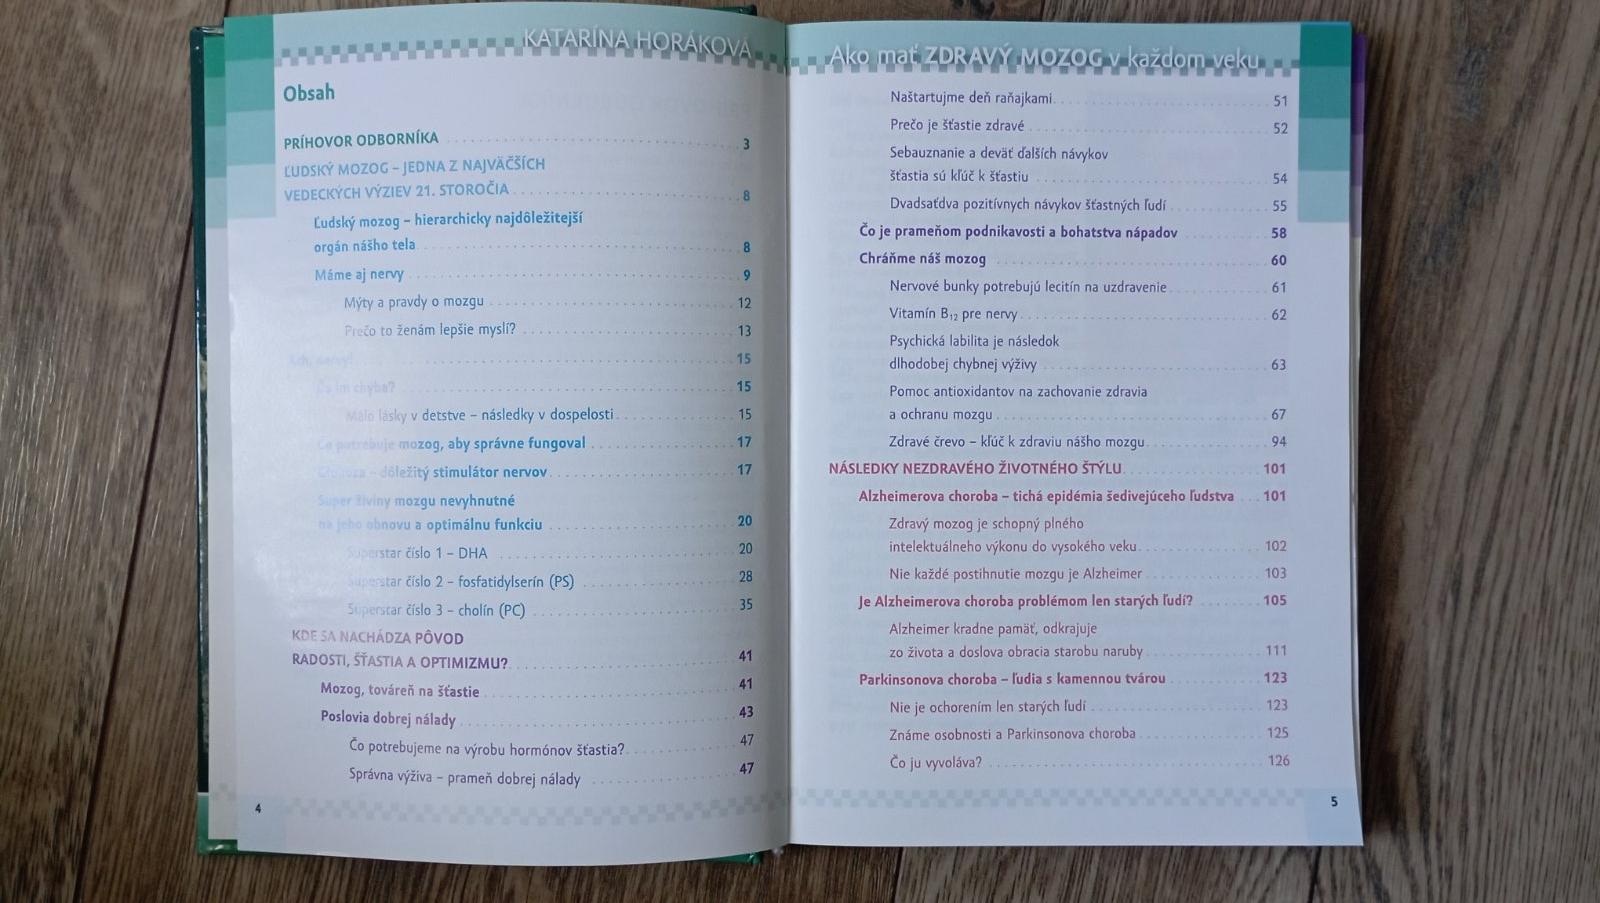 KATARÍNA HORÁKOVÁ
Obsah
PRÍHOVOR ODBORNÍKA 3
ĽUDSKÝ MOZOG – JEDNA Z NAJVÄČŠÍCH
VEDECKÝCH VÝZIEV 21. STOROČIA 8
Ľudský mozog – hierarchicky najdôležitejší
orgán nášho tela 8
Máme aj nervy 9
Mýty a pravdy o mozgu 12
Prečo to ženám lepšie myslí? 13
Ach, nervy! 15
Čo im chýba? 15
Málo lásky v detstve – následky v dospelosti 15
Čo potrebuje mozog, aby správne fungoval 17
Glukóza – dôležitý stimulátor nervov 17
Super živiny mozgu nevyhnutné
na jeho obnovu a optimálnu funkciu 20
Superstar číslo 1 – DHA 20
Superstar číslo 2 – fosfatidylserín (PS) 28
Superstar číslo 3 – cholín (PC) 35
KDE SA NACHÁDZA PÔVOD
RADOSTI, ŠŤASTIA A OPTIMIZMU? 41
Mozog, továreň na šťastie 41
Poslovia dobrej nálady 43
Čo potrebujeme na výrobu hormónov šťastia? 47
Správna výživa – prameň dobrej nálady 47
4
Ako mať ZDRAVÝ MOZOG v každom veku
Naštartujme deň raňajkami 51
Prečo je šťastie zdravé 52
Sebauznanie a deväť ďalších návykov
šťastia sú kľúč k šťastiu 54
Dvadsaťdva pozitívnych návykov šťastných ľudí 55
Čo je prameňom podnikavosti a bohatstva nápadov 58
Chráňme náš mozog 60
Nervové bunky potrebujú lecitín na uzdravenie 61
Vitamín B₁₂ pre nervy 62
Psychická labilita je následok
dlhodobej chybnej výživy 63
Pomoc antioxidantov na zachovanie zdravia
a ochranu mozgu 67
Zdravé črevo – kľúč k zdraviu nášho mozgu 94
NÁSLEDKY NEZDRAVÉHO ŽIVOTNÉHO ŠTÝLU 101
Alzheimerova choroba – tichá epidémia šedivejúceho ľudstva 101
Zdravý mozog je schopný plného
intelektuálneho výkonu do vysokého veku 102
Nie každé postihnutie mozgu je Alzheimer 103
Je Alzheimerova choroba problémom len starých ľudí? 105
Alzheimer kradne pamäť, odkrajuje
zo života a doslova obracia starobu naruby 111
Parkinsonova choroba – ľudia s kamennou tvárou 123
Nie je ochorením len starých ľudí 123
Známe osobnosti a Parkinsonova choroba 125
Čo ju vyvoláva? 126
5